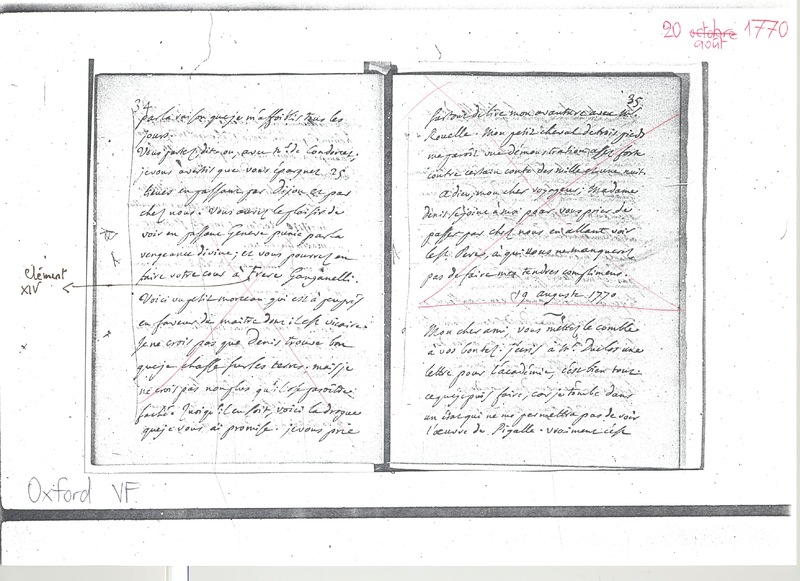 20 octobre 1770
août
34
par la raison que je m'affoiblis tous les
jours.
Vous partez, dit on, avec Mr. de Condorcet,
je vous avertis que vous épargnez 25
lieues en passant par Dijon et par
chez nous. Vous aurez le plaisir de
voir en passant Genève punie par la
vengeance divine; et vous pourrez en
faire votre cour à Frere Ganganelli.
Voici un petit morceau qui est à peu près
en faveur du maître dont il est vicaire.
Je ne crois pas que Denis trouve bon
que je chasse sur les terres. mais je
ne crois pas non plus qu'il se
fache. Quoi qu'il en soit voici la drogue
que je vous ai promise. je vous prie
Clément
XIV
35
sur tout de lire mon avanture avec Mr.
Rouelle. Mon petit cheval de trois pieds
me paroît une démonstration assez forte
contre certain conte des mille et une nuit.
adieu, mon cher voyageur; Madame
denis se joint à moi pour vous prier de
passer par chez nous en allant voir
le St. Pere, à qui nous ne manquerons
pas de faire mes tendres compliments.
19 auguste 1770
Mon cher ami, vous mettez le comble
à vos bontez. j'écris à Mr. Duclos une
lettre pour l'académie, c'est bien tout
ce que je puis faire, car je tombe dans
un état qui ne me permettra pas de voir
l'œuvre de Pigalle. vraiment c'est
Oxford VF